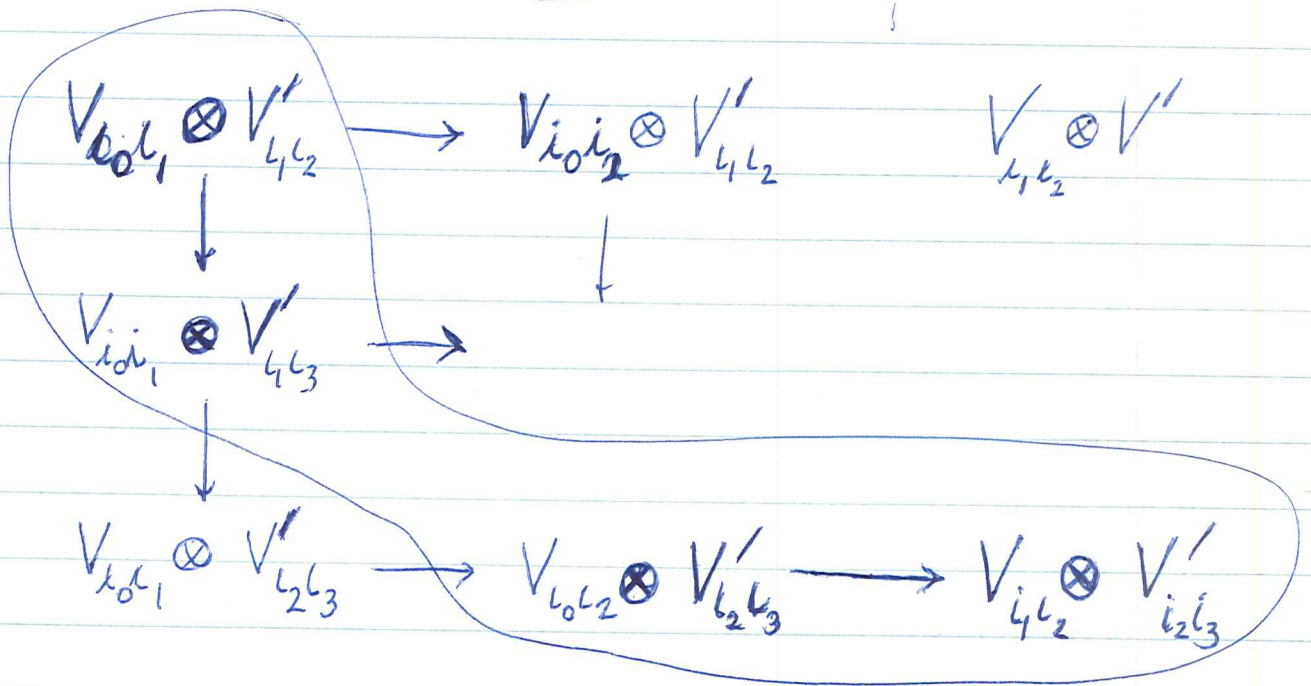 V_{i_0 i_1} ⊗ V'_{i_1 i_2} → V_{i_0 i_2} ⊗ V'_{i_1 i_2} V_{i_1 i_2} ⊗ V'
↓ ↓
V_{i_0 i_1} ⊗ V'_{i_1 i_3} →
↓
V_{i_0 i_1} ⊗ V'_{i_2 i_3} → V_{i_0 i_2} ⊗ V'_{i_2 i_3} → V_{i_1 i_2} ⊗ V'_{i_2 i_3}